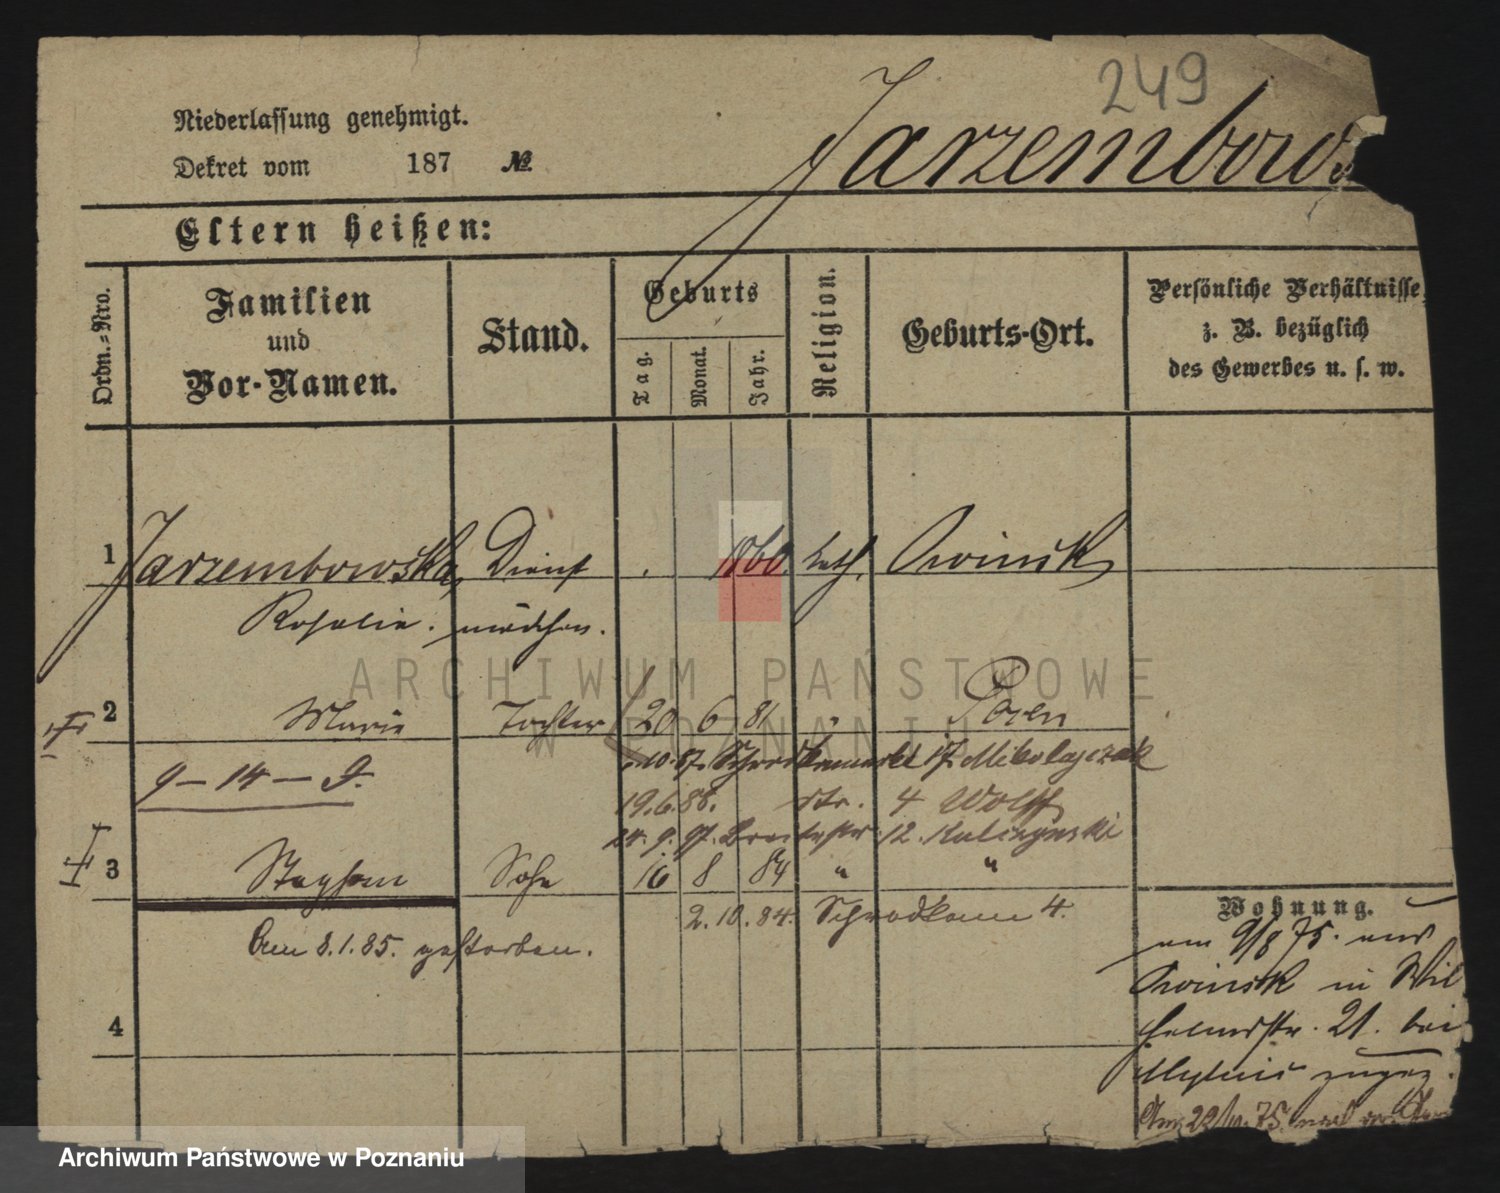 249
Niederlassung genehmigt.
Dekret vom 187 №
Jarzembows
Eltern heißen:
Ordn.-Nro.
Familien
und
Vor-Namen.
Stand.
Geburts
Tag.
Monat.
Jahr.
Religion.
Geburts-Ort.
Persönliche Verhältnisse
z. B. bezüglich
des Gewerbes u. s. w.
1 Jarzembowska, Dienst 1860 kath. Owinsk
Rosalie. mädchen.
2 Marie Tochter 20 6 81 Posen
10.87. Schrodkamarkt 17 Mikolajczak
9-14-9.
19.6.88. str. 4 Wolff
24.9.97. Breitestr. 12.
3 Stephan Sohn 16 8 84 " "
2.10.84. Schrodkam 4.
Am 8.1.85. gestorben.
Wohnung.
am 9/8 75. aus
Owinsk in Wil
helmstr. 21. bei
Mylius zugez.
Am 22/10. 75. nach
4
ARCHIWUM PAŃSTWOWE
W POZNANIU
Archiwum Państwowe w Poznaniu